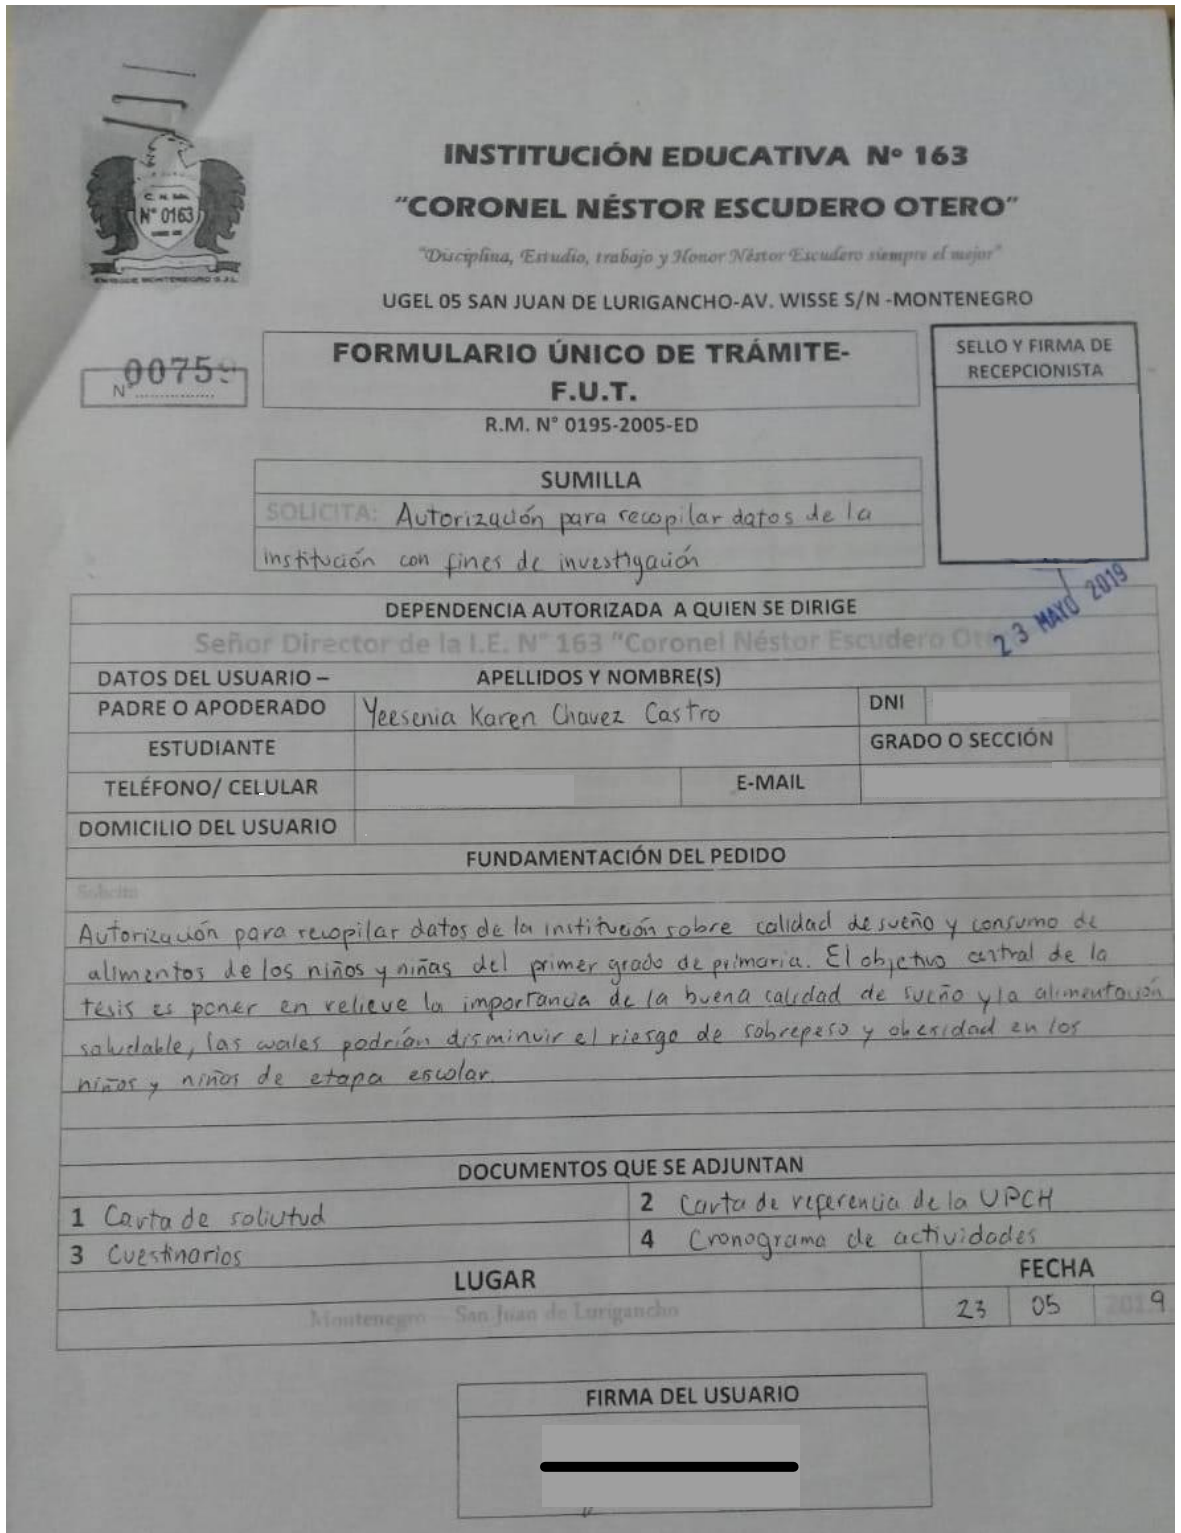 C. N. Mx.
N° 0163
ENRIQUE MONTENEGRO S.J.L.
INSTITUCIÓN EDUCATIVA Nº 163
"CORONEL NÉSTOR ESCUDERO OTERO"
"Disciplina, Estudio, trabajo y Honor Néstor Escudero siempre el mejor"
UGEL 05 SAN JUAN DE LURIGANCHO-AV. WISSE S/N -MONTENEGRO
N° 00759
FORMULARIO ÚNICO DE TRÁMITE-
F.U.T.
R.M. N° 0195-2005-ED
SELLO Y FIRMA DE
RECEPCIONISTA
SUMILLA
SOLICITA: Autorización para recopilar datos de la
institución con fines de investigación
23 MAYO 2019
DEPENDENCIA AUTORIZADA A QUIEN SE DIRIGE
Señor Director de la I.E. N° 163 "Coronel Néstor Escudero
DATOS DEL USUARIO – APELLIDOS Y NOMBRE(S)
PADRE O APODERADO Yeesenia Karen Chavez Castro DNI
ESTUDIANTE GRADO O SECCIÓN
TELÉFONO/ CELULAR E-MAIL
DOMICILIO DEL USUARIO
FUNDAMENTACIÓN DEL PEDIDO
Solicita
Autorización para recopilar datos de la institución sobre calidad de sueño y consumo de
alimentos de los niños y niñas del primer grado de primaria. El objetivo central de la
tesis es poner en relieve la importancia de la buena calidad de sueño y la alimentación
saludable, las cuales podrían disminuir el riesgo de sobrepeso y obesidad en los
niños y niños de etapa escolar.
DOCUMENTOS QUE SE ADJUNTAN
1 Carta de solicitud 2 Carta de referencia de la UPCH
3 Cuestinarios 4 Cronograma de actividades
LUGAR FECHA
Montenegro – San Juan de Lurigancho 23 05 2019
FIRMA DEL USUARIO